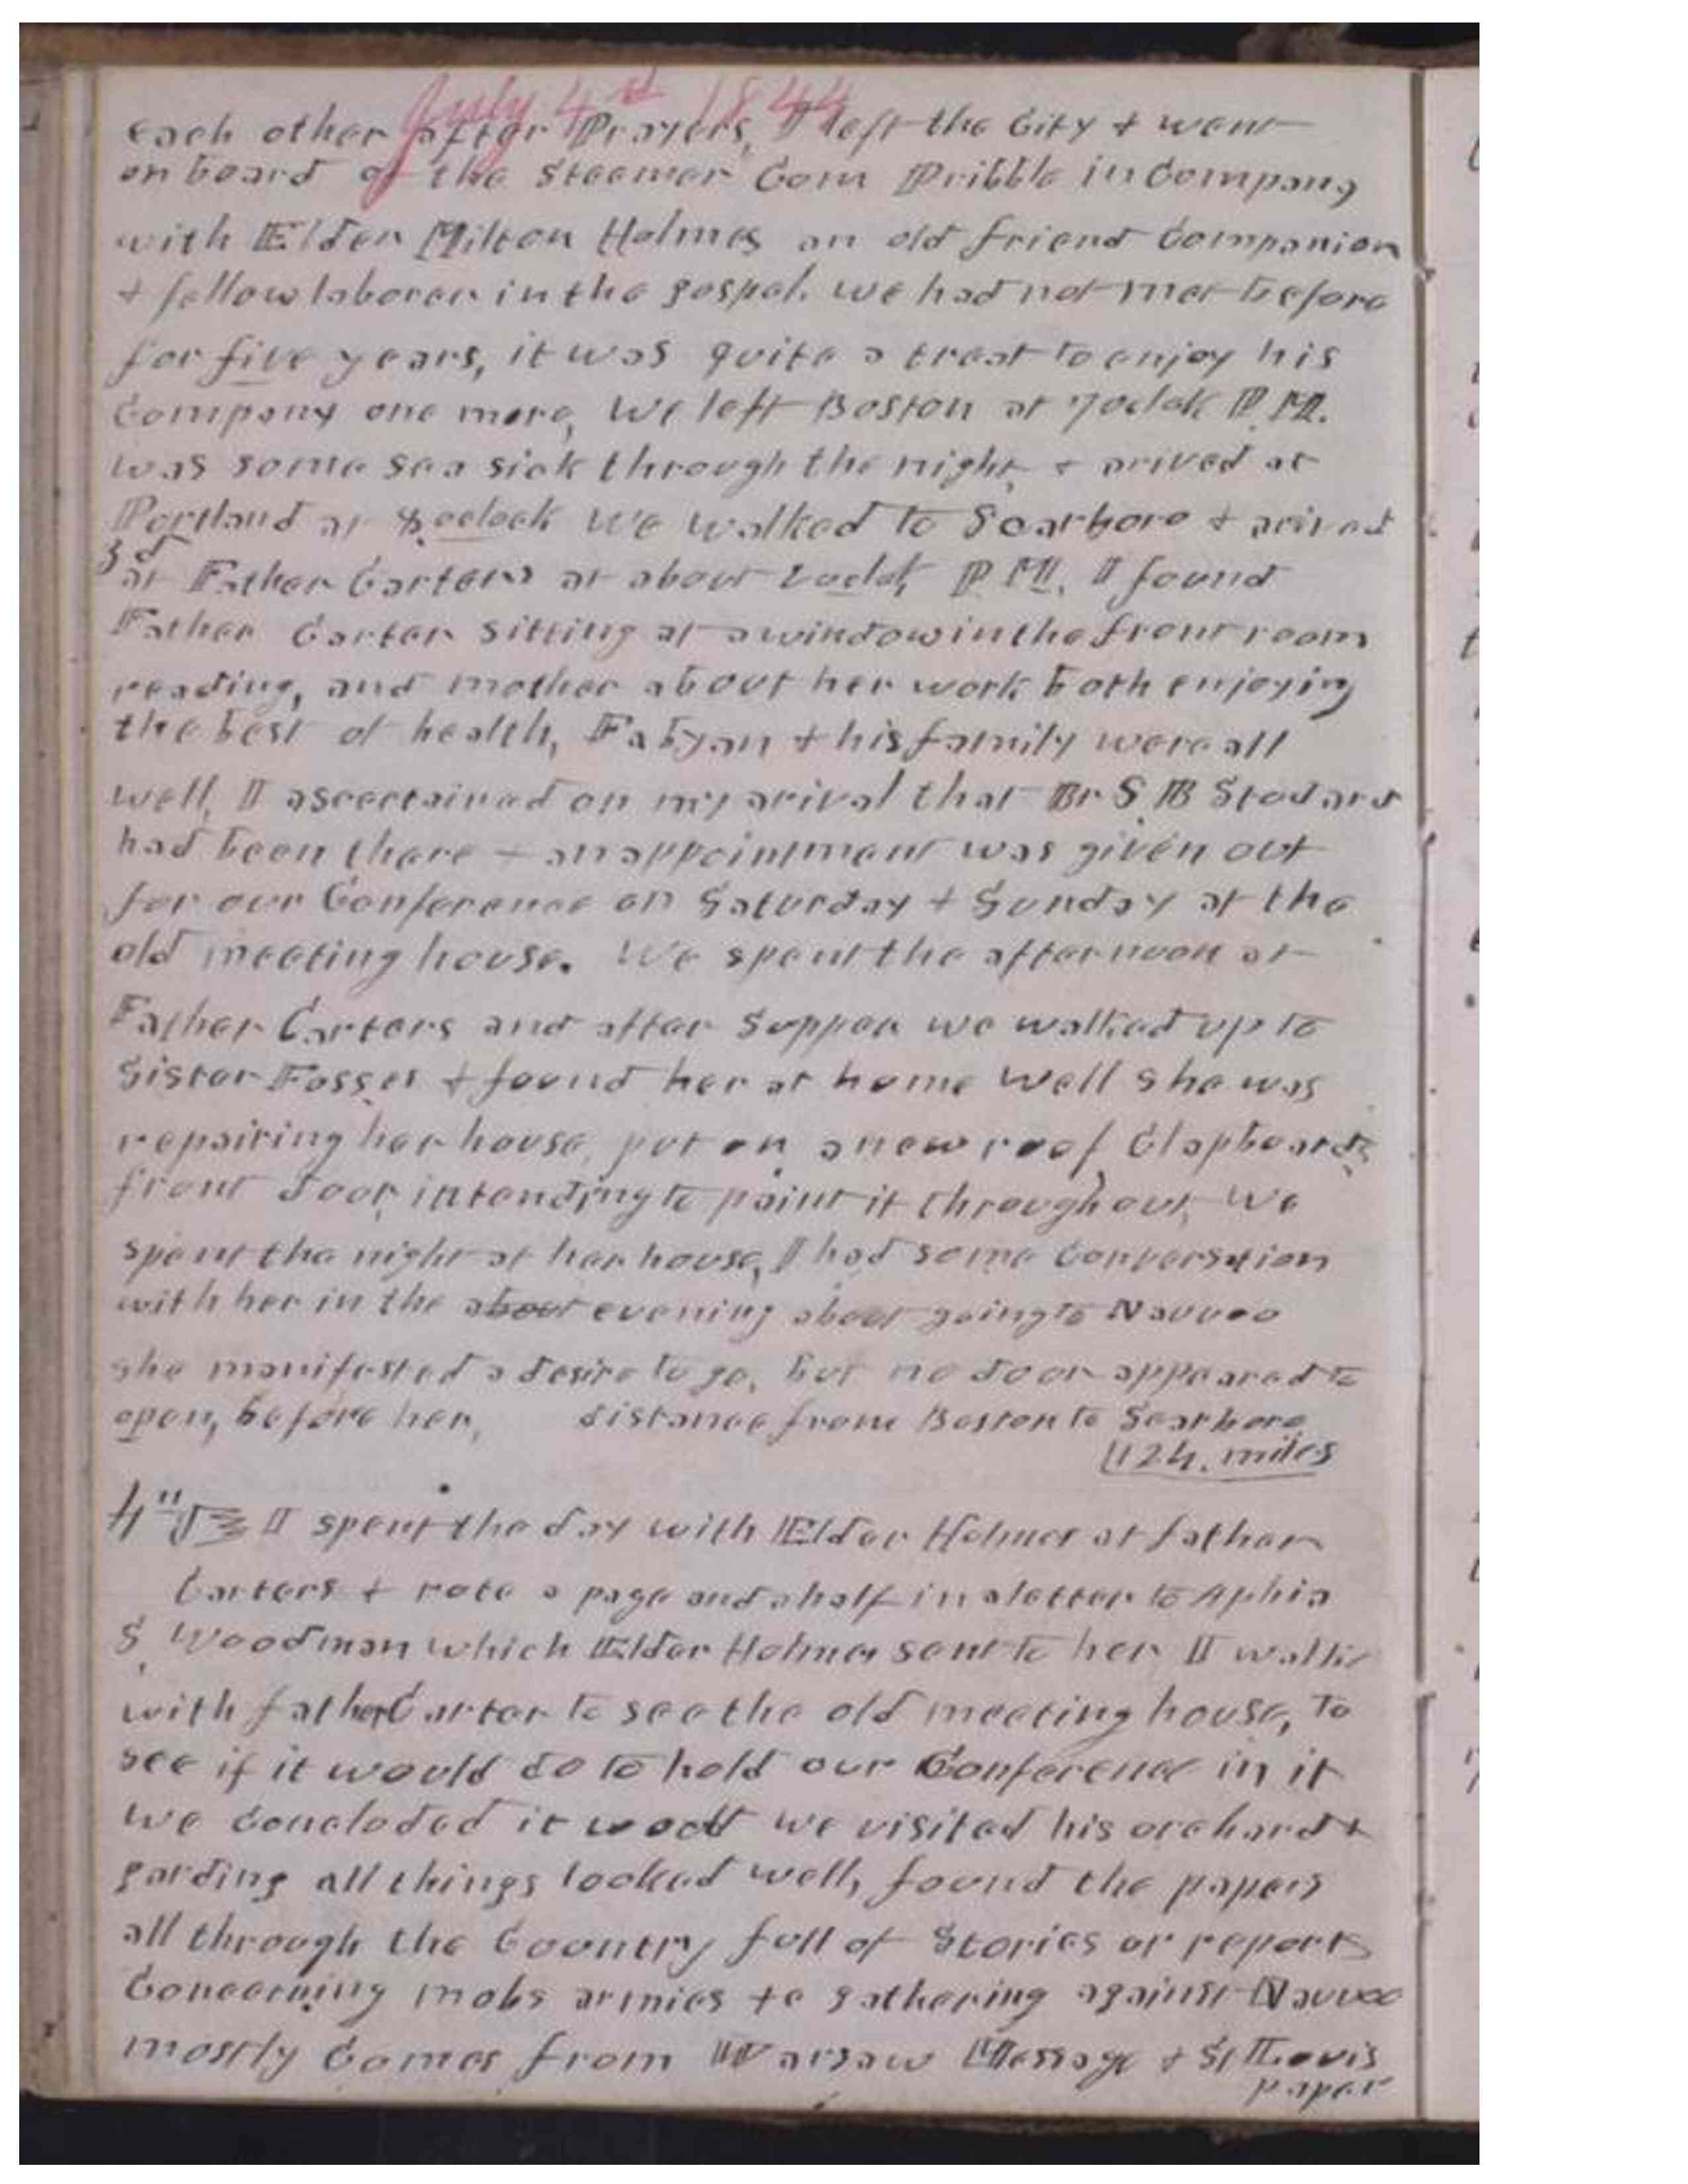 July 4th 1844
each other after Prayers, I left the City & went
on board of the Steemer Com Pribble in Company
with Elder Milton Holmes an old friend Companion
& fellow laborer in the gospel. we had not met before
for five years, it was quite a treat to enjoy his
Company one more, We left Boston at 7 oclok P.M.
was some sea sick through the night, & arived at
Portland at 8 oclock We walked to Scarboro & arived
3d
at Father Carters at about 2 oclok, P.M. I found
Father Carter sitting at a window in the front room
reading, and mother about her work both enjoying
the best of health, Fabyan & his family were all
well, I ascertained on my arival that Br S. B Stodard
had been there & an appointment was given out
for our Conference on Saturday & Sunday at the
old meeting house. We spent the afternoon at
Father Carters and after Supper we walked up to
Sister Fosses & found her at home well she was
repairing her house, put on a new roof Clapboards,
front door, intending to paint it throughout, We
spent the night at her house, I had some Conversation
with her in the about evening about going to Nauvoo
she manifested a desire to go, but no door appeared to
open, before her, distance from Boston to Scarboro
124. miles
4th I spent the day with Elder Holmes at father
Carters & rote a page and a half in a letter to Aphia
S, Woodman which Elder Holmes sent to her I walkd
with father Carter to see the old meeting house, to
see if it would do to hold our Conference in it
we Concluded it woud we visited his orchard &
garding all things looked well, found the papers
all through the Country full of Stories or reports
Concerning mobs armies &c gathering against Nauvoo
mostly Comes from Warsaw Message & St Louis
paper